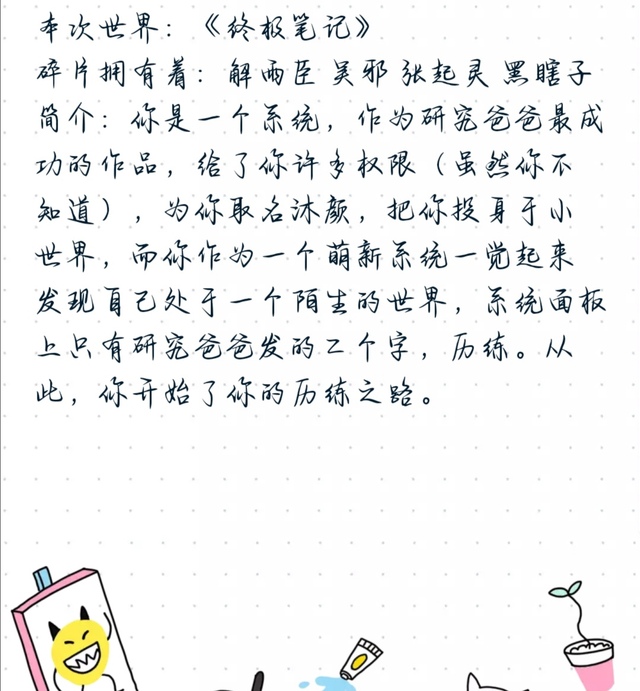 本次世界：《终极笔记》
碎片拥有着：解雨臣 吴邪 张起灵 黑瞎子
简介：你是一个系统，作为研究爸爸最成
功的作品，给了你许多权限（虽然你不
知道），为你取名沐颜，把你投身于小
世界，而你作为一个萌新系统一觉起来
发现自己处于一个陌生的世界，系统面板
上只有研究爸爸发的二个字，历练。从
此，你开始了你的历练之路。